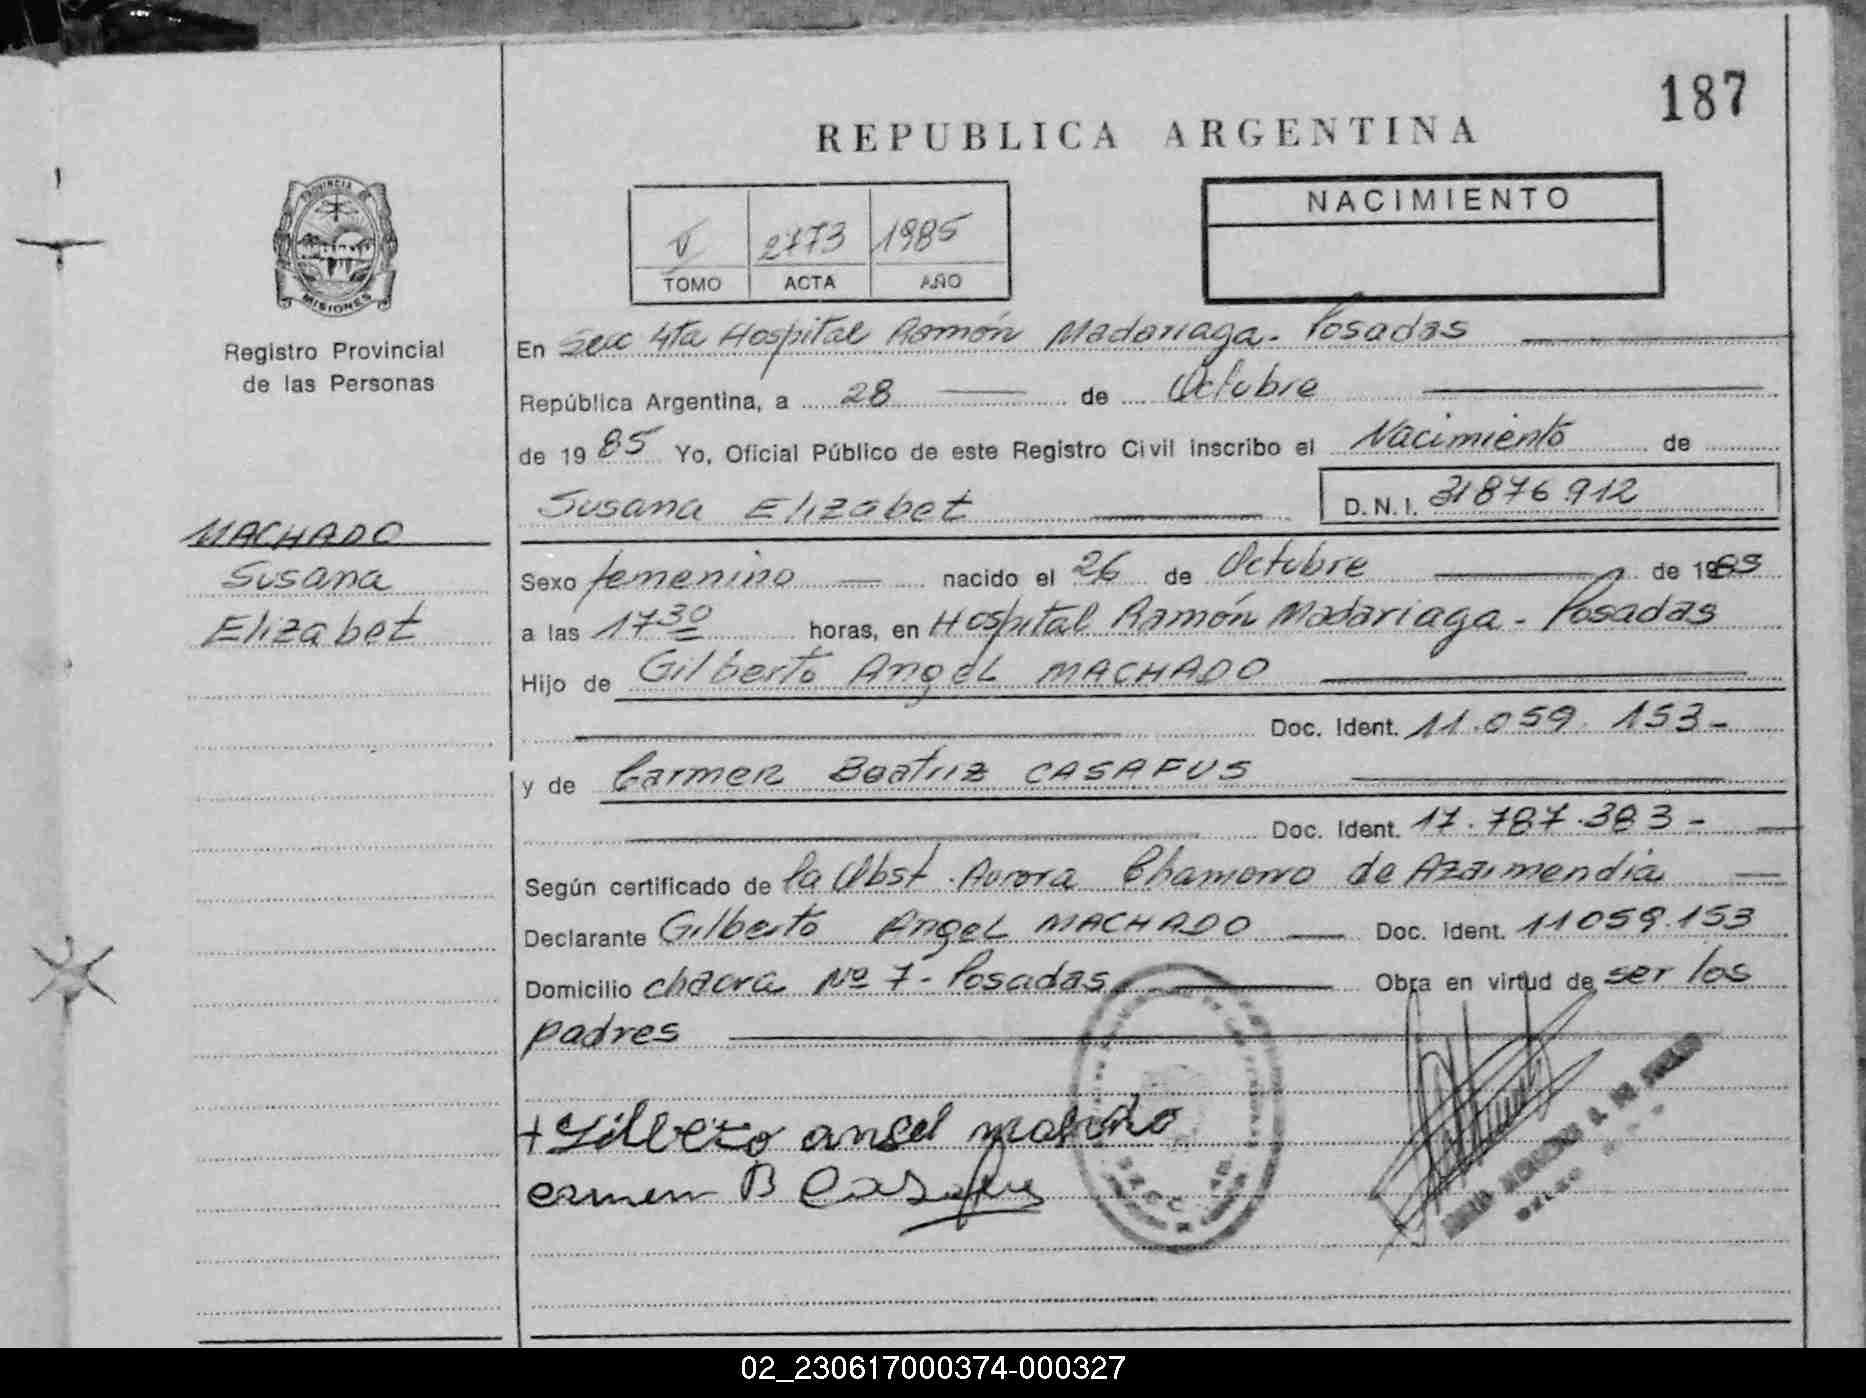 187
REPUBLICA ARGENTINA
NACIMIENTO
V 2773 1985
TOMO ACTA AÑO
PROVINCIA DE
MISIONES
Registro Provincial
de las Personas
En Secc 4ta Hospital Ramón Madariaga - Posadas
República Argentina, a 28 de Octubre
de 1985 Yo, Oficial Público de este Registro Civil inscribo el Nacimiento de
Susana Elizabet D.N.I. 31876912
MACHADO
Susana
Elizabet
Sexo femenino nacido el 26 de Octubre de 1985
a las 17 30 horas, en Hospital Ramón Madariaga - Posadas
Hijo de Gilberto Angel MACHADO
Doc. Ident. 11.059.153-
y de Carmen Beatriz CASAFUS
Doc. Ident. 17.787.383-
Según certificado de la Obst. Aurora Chamorro de Azarmendia
Declarante Gilberto Angel MACHADO Doc. Ident. 11059.153
Domicilio chacra Nº 7 - Posadas Obra en virtud de ser los
padres
+ Gilberto angel machado
carmen B Casafus
02_230617000374-000327